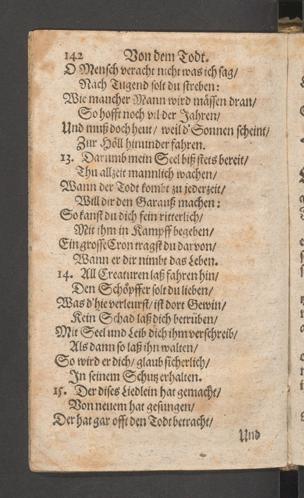 142 Von dem Todt.
O Mensch veracht nicht was ich sag/
Nach Tugend solt du streben:
Wie mancher Mann wird mässen dran/
So hofft noch vil der Jahren/
Und muß doch heut/ weil d'Sonnen scheint/
Zur Höll hinunder fahren.
13. Darumb mein Seel biß stets bereit/
Thu allzeit mannlich wachen/
Wann der Todt kombt zu jederzeit/
Will dir den Garauß machen:
So kanst du dich fein ritterlich/
Mit ihm in Kampff begeben/
Ein grosse Cron tragst du darvon/
Wann er dir nimbt das Leben.
14. All Creaturen laß fahren hin/
Den Schöpffer solt du lieben/
Was d'hie verleurst/ ist dort Gewin/
Kein Schad laß dich betrüben/
Mit Seel und Leib dich ihm verschreib/
Als dann so laß ihn walten/
So wird er dich/ glaub sicherlich/
In seinem Schutz erhalten.
15. Der dises Liedlein hat gemacht/
Von neuem hat gesungen/
Der hat gar offt den Todt betracht/
Und